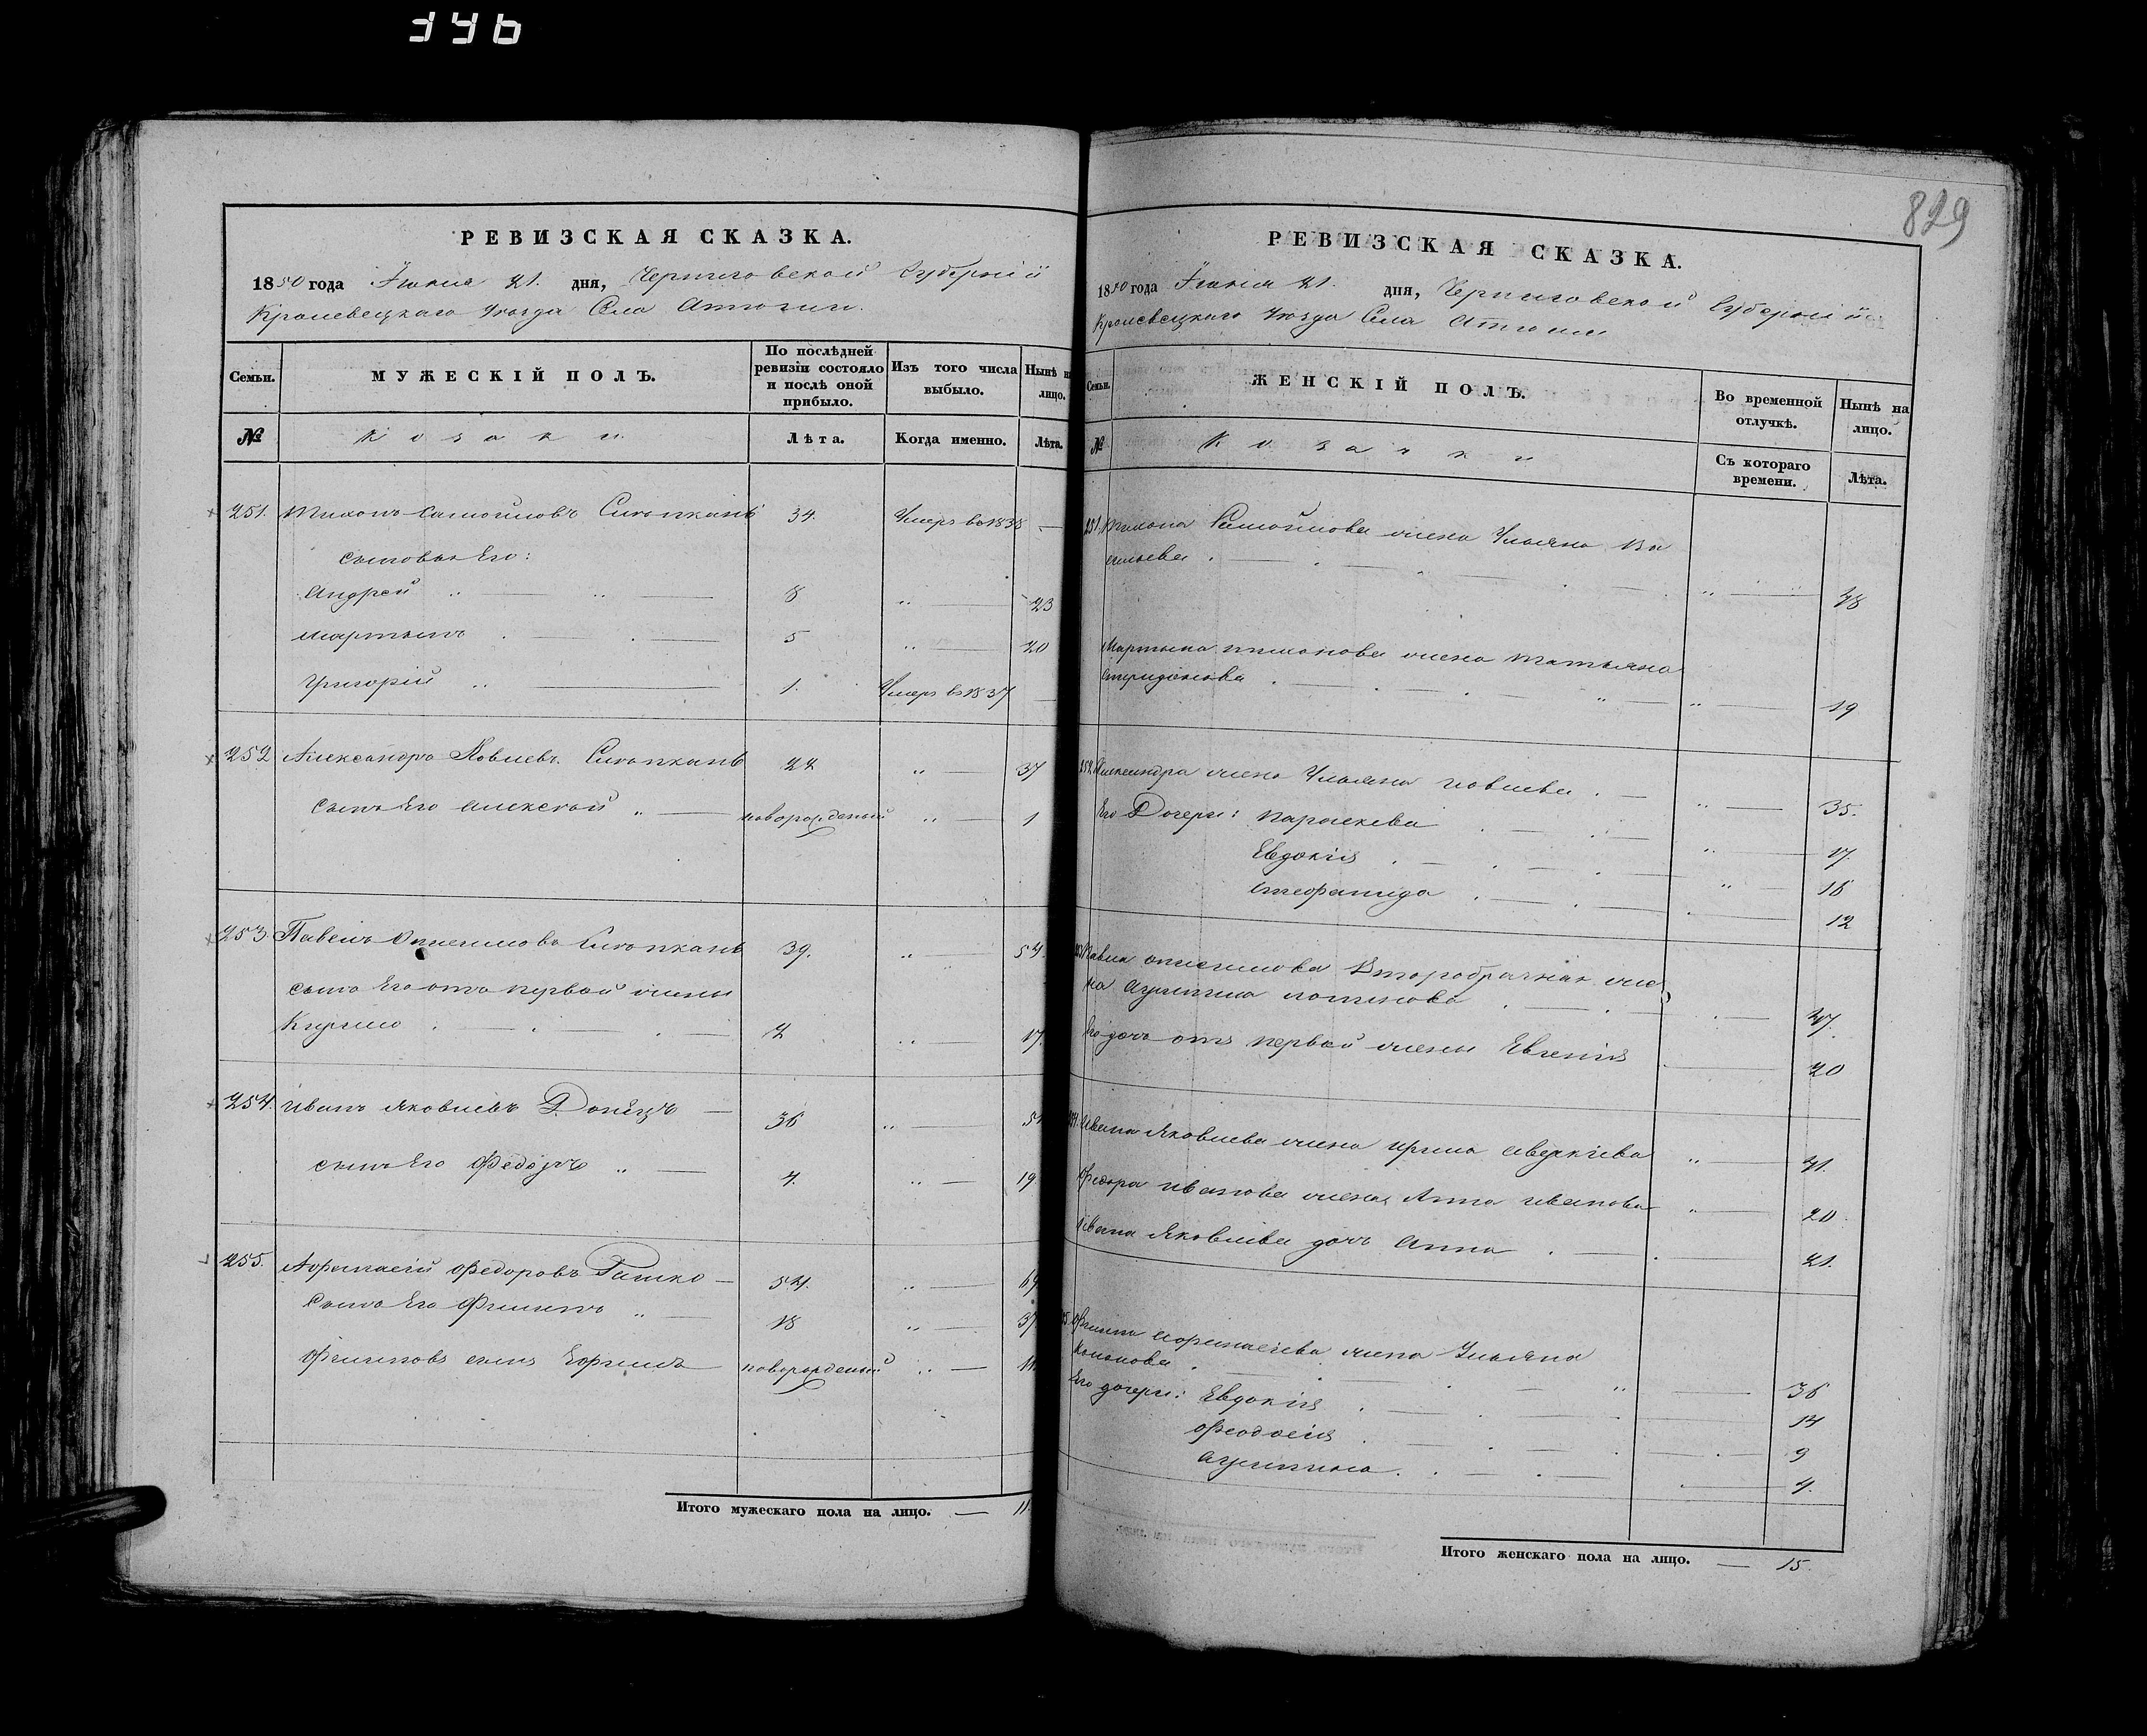 346
829
РЕВИЗСКАЯ СКАЗКА.
1850 года Іюния 21. дня, Черниговской Губерніи
Кролевецкаго Уезда Села Атюши.
Семьи.
МУЖЕСКІЙ ПОЛЪ.
По послѣдней ревизіи состояло и послѣ оной прибыло.
Изъ того числа выбыло.
Нынѣ на лицо.
№
Козаки
Лѣта.
Когда именно.
Лѣта.
251. Тихонъ Самойловъ 34. Умеръ въ 1838 —
сыновья Его:
Андрей 8 23
Мартынъ 5 20
Григорій 1. Умеръ въ 1837
252 Александръ Іовлевъ 22 37
сынъ Его Алексѣй новорожденый 1
253. Павелъ Онисимовъ 39. 54.
сынъ Его отъ первой жены
Кирило 2 17.
254. Иванъ Яковлевъ Донецъ — 36 51
сынъ Его Федоръ 4. 19.
255. Афанасій Федоровъ — 54. 69
сынъ Его Филипъ 18 37
Филиповъ сынъ Ефимъ новорожденый 11.
Итого мужескаго пола на лицо. — 11.
РЕВИЗСКАЯ СКАЗКА.
1850 года Іюнія 21. дня, Черниговской Губерніи
Кролевецкаго Уезда Села Атюши
Семьи.
ЖЕНСКІЙ ПОЛЪ.
Во временной отлучкѣ.
Нынѣ на лицо.
№
Козачки
Съ котораго времени.
Лѣта.
251. Тихона Самойлова жена Ульяна Ва
сильева 48
Мартына Тихонова жена Татьяна
Спиридонова 19
252. Александра жена Ульяна Іовлева 35.
Его Дочери: Параскева 17.
Евдокія 16
12
253. Павла Онисимова Второбрачная же
на Агрипина 47.
Его дочь отъ первой жены Евгенія 20
254. Ивана Яковлева жена Ирина Аверкіева 41.
Федора Иванова жена Анна Иванова 20
Ивана Яковлева дочь Анна 21.
255. Филипа Афанасіева жена Ульяна
Кононова 36
Его дочери: Евдокія 14
Феодосія 9
Агрипина 4.
Итого женскаго пола на лицо. — 15.